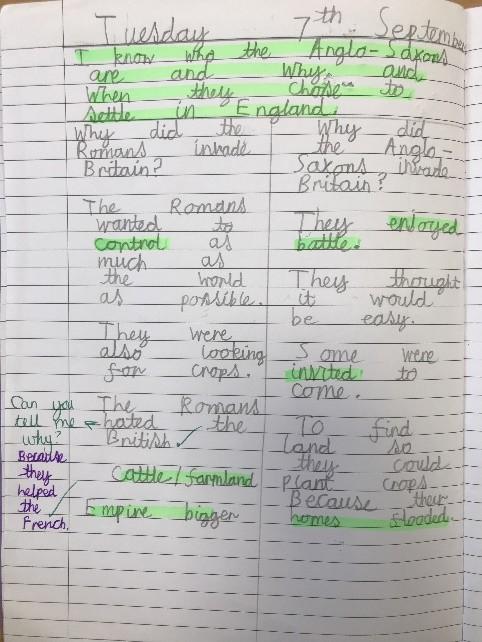 Tuesday 7th September
I know who the Anglo-Saxons
are and why and
when they chose to
settle in England.
Why did the
Romans invade
Britain?
The Romans
wanted to
control as
much as
the world
as possible.
They were
also looking
for crops.
The Romans
hated the
British
Cattle/farmland
Empire bigger
Why did
the Anglo-
Saxons invade
Britain?
They enjoyed
battle.
They thought
it would
be easy.
Some were
invited to
come.
To find
land so
they could
plant crops
Because their
homes flooded.
Can you
tell me
why?
Because
they
helped
the
French.